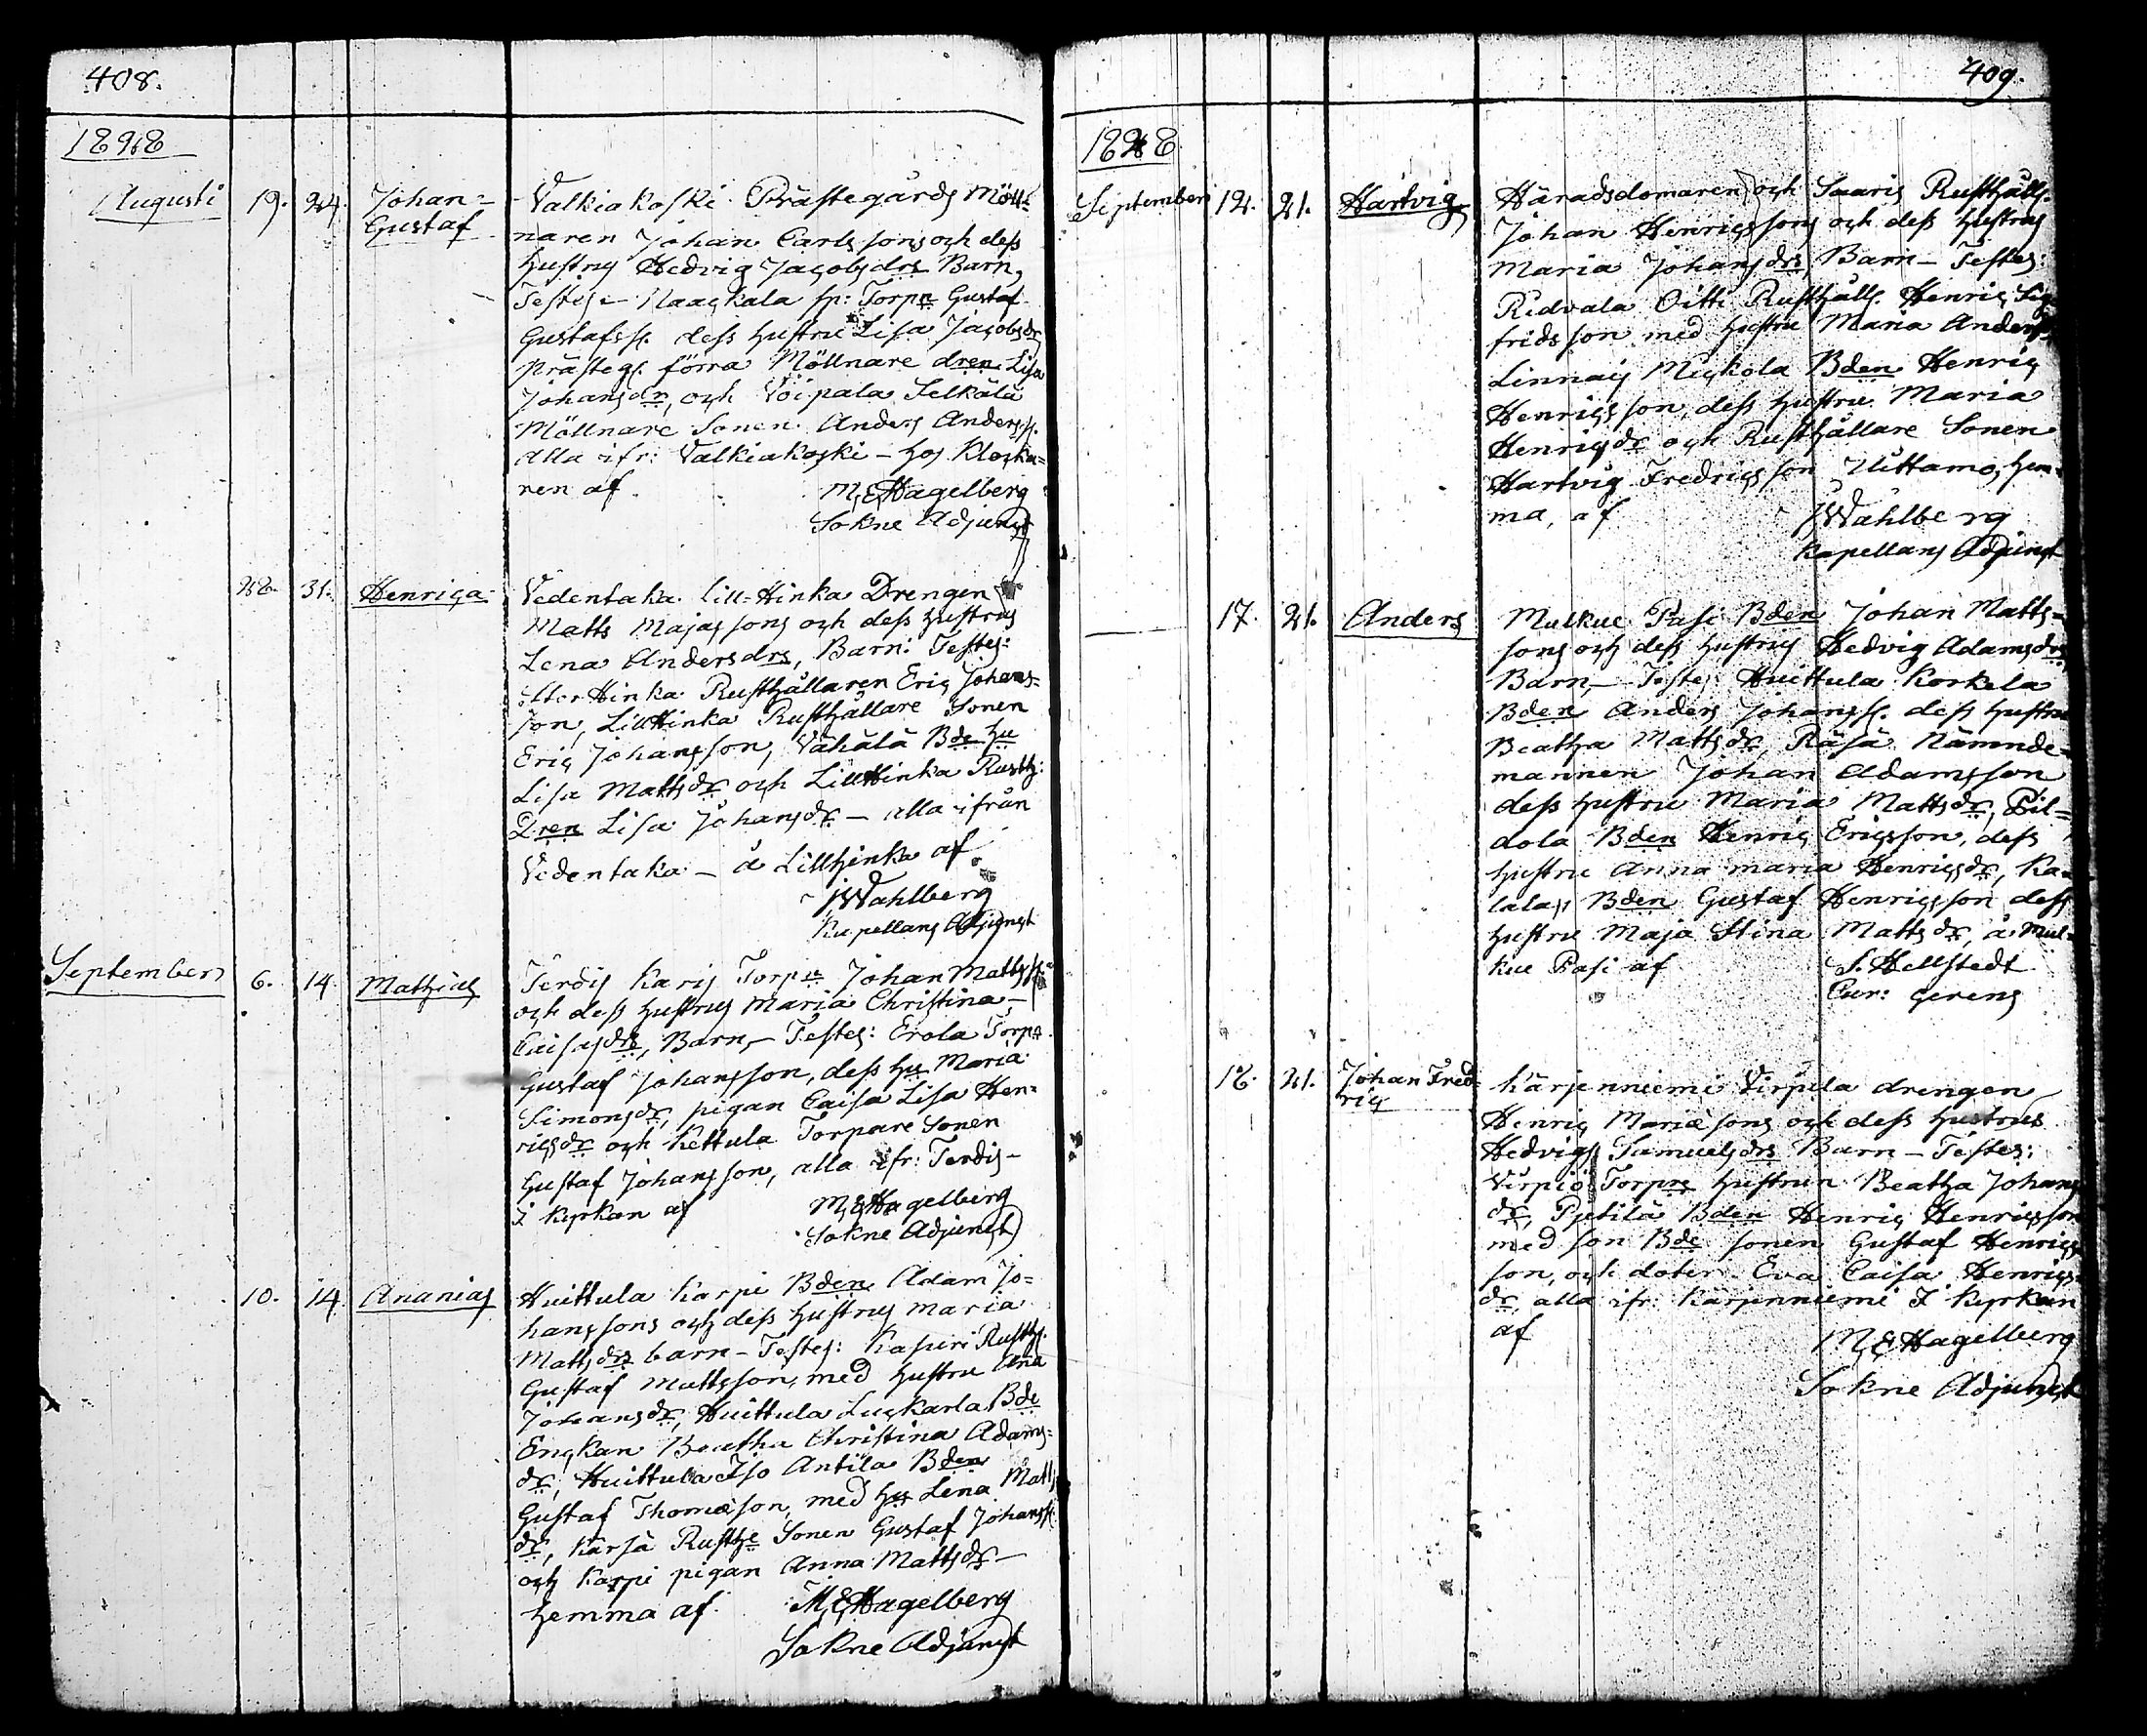 408.
1828
Augusti 19. 24. Johan=
Gustaf
Valkiakoski Prästegårds Möll=
naren Johan Carlssons och dess
hustrus Hedvig Jacobsdrs Barn,
Testes – Kaagkala sp: Torpn Gustaf
Gustafss. dess hustru Lisa Jacobsdr
prästegs. förra Möllnare dren Lisa
Johansdr, och Voipala Selkälä
Möllnare Sonen Anders Anderss.
alla ifr: Valkiakoski – hos Klocka=
ren af M. E. Hagelberg
Sokne Adjunct
28. 31. Henrica
Vedentaka lill=Hinka Drengen
Matts Majassons och dess hustrus
Lena Andersdrs, Barn: Testes:
Hinka Rusthållaren Eric Johans=
son, LillHinka Rusthållare Sonen
Eric Johansson, Vähälä Bde hu
Lisa Mattsdr och LillHinka Rusth:
Dren Lisa Johansdr – alla ifrån
Vedentaka – å Lillhinka af
JWahlberg
Kapellans Adjunct
September 6. 14. Mathias
Terdis Karis Torpn Johan Mattss.
och dess hustrus Maria Christina
Caisasdrs, Barn, – Testes: Erola Torpn
Gustaf Johansson, dess hu Maria
Simonsdr, pigan Caisa Lisa Hen=
ricsdr och Kettula Torpare Sonen
Gustaf Johansson, alla ifr: Terdis –
I kyrkan af M. E. Hagelberg
Sokne Adjunct
10. 14. Ananias
Huittula Karpi Bden Adam Jo=
hanssons och dess hustrus Maria
Mattsdrs barn – Testes: Kasuri Rusth.
Gustaf Mattsson, med hustru Ana
Johansdr, Huittula Luckarla Bde
Enckan Beatha Christina Adams=
dr, Huittula Iso Antila Bden
Gustaf Thomæson, med hu Lena Matts
dr, Kärsä Rusthe Sonen Gustaf Johanss.
och Karpi pigan Anna Mattsdr –
hemma af M. E. Hagelberg
Sokne Adjunct
409.
1828
September 12. 21. Hartvig
Häradsdomaren och Saaris Rusthålls.
Johan Henricssons och dess hustrus
Maria Johansdrs Barn – Testes:
Ridvala Oitti Rusthålls. Henric Sig=
fridsson med hustru Maria Anders
Linnais Mickola Bden Henric
Henricsson, dess hustru Maria
Henricsdr och Rusthållare Sonen
Hartvig Fredricsson Uittamo, hem=
ma, af JWahlberg
Kapellans Adjunct
17. 21. Anders
Mulkue Pasi Bden Johan Matts=
sons och dess hustrus Hedvig Adamsdrs
Barn, – Testes Huittula Korkela
Bden Anders Johanss. dess hustru
Beatha Mattsdr, Räsä Nämnde=
mannen Johan Adamsson
dess hustru Maria Mattsdr, Pil=
dola Bden Henric Ericsson, dess
hustru Anna Maria Henricsdr, Ka=
Bden Gustaf Henricsson dess
hustru Maja Stina Mattsdr, å Mul=
kue Pasi af S. Hellstedt
Cur: gerens
18. 21. Johan Fred=
ric
Kärjenniemi Virpila drengen
Henric Mariæsons och dess hustrus
Hedvigs Samuelsdrs Barn – Testes:
Virpiö Torpns hustrun Beatha Johans
dr, Pytilä Bden Henric Henricsson
med son Bde sonen Gustaf Henrics
son, och doter Eva Caisa Henrics=
dr, alla ifr: Kärjenniemi I kyrkan
af M. E. Hagelberg
Sokne Adjunct